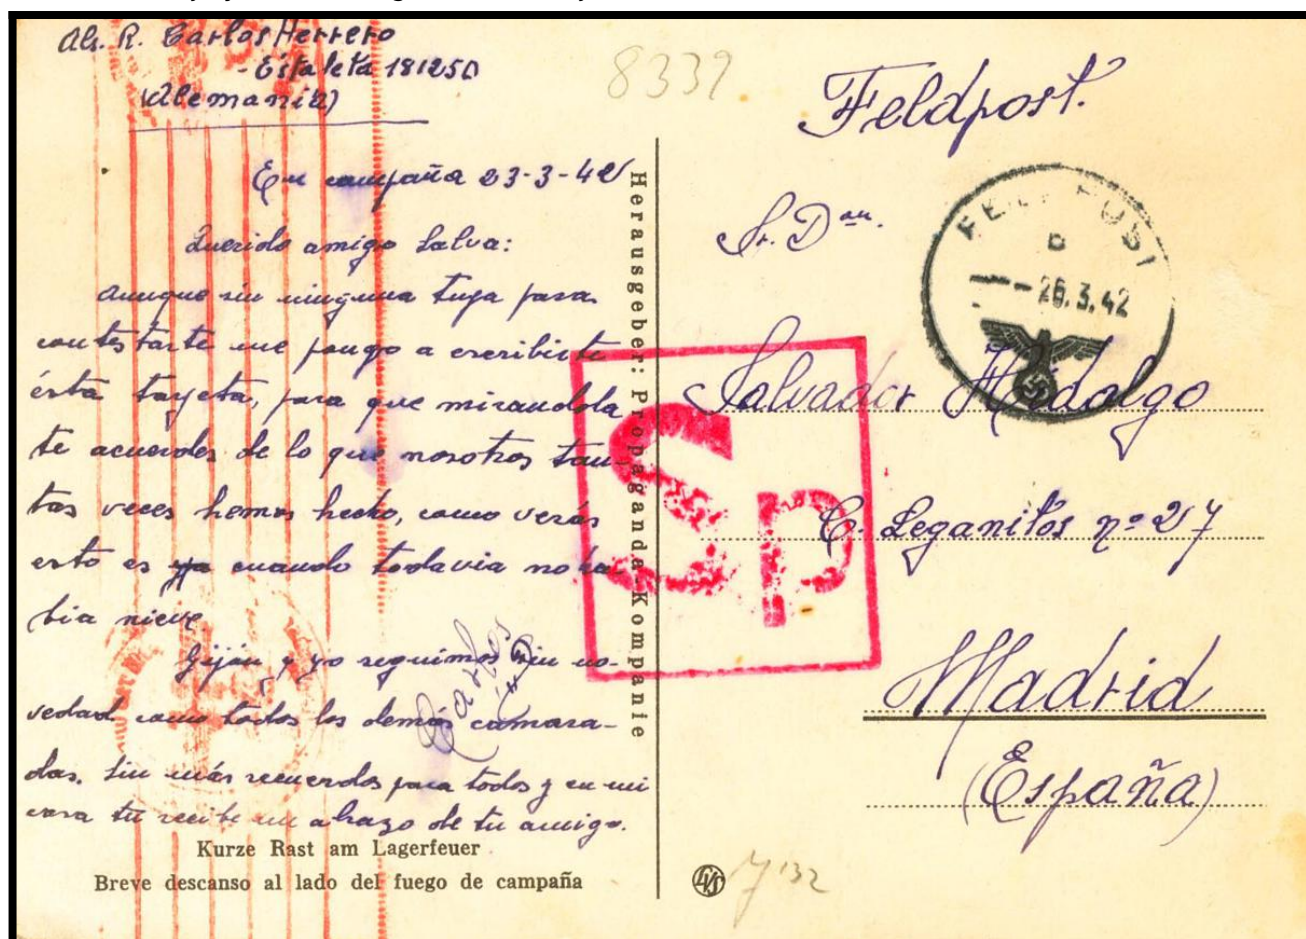 Als. R. Carlos Herrero
- Estafeta 18125D
(Alemania)
En campaña 23-3-42
Querido amigo Salva:
Aunque sin ninguna tuya para
contestarte me pongo a escribirte
ésta tarjeta, para que mirandola
te acuerdes de lo que nosotros tan-
tas veces hemos hecho, como verás
esto es ya cuando todavia no ha-
bia nieve.
Gijón y yo seguimos sin no-
vedad como todos los demás camara-
das. Sin más recuerdos para todos y en mi
tu recibe un abrazo de tu amigo.
Carlos
Kurze Rast am Lagerfeuer
Breve descanso al lado del fuego de campaña
Herausgeber: Propaganda-Kompanie
8339
Feldpost.
FELDPOST
b
26.3.42
Sr. Don.
Salvador Hidalgo
C. Leganitos nº 27
Madrid
(España)
Sp